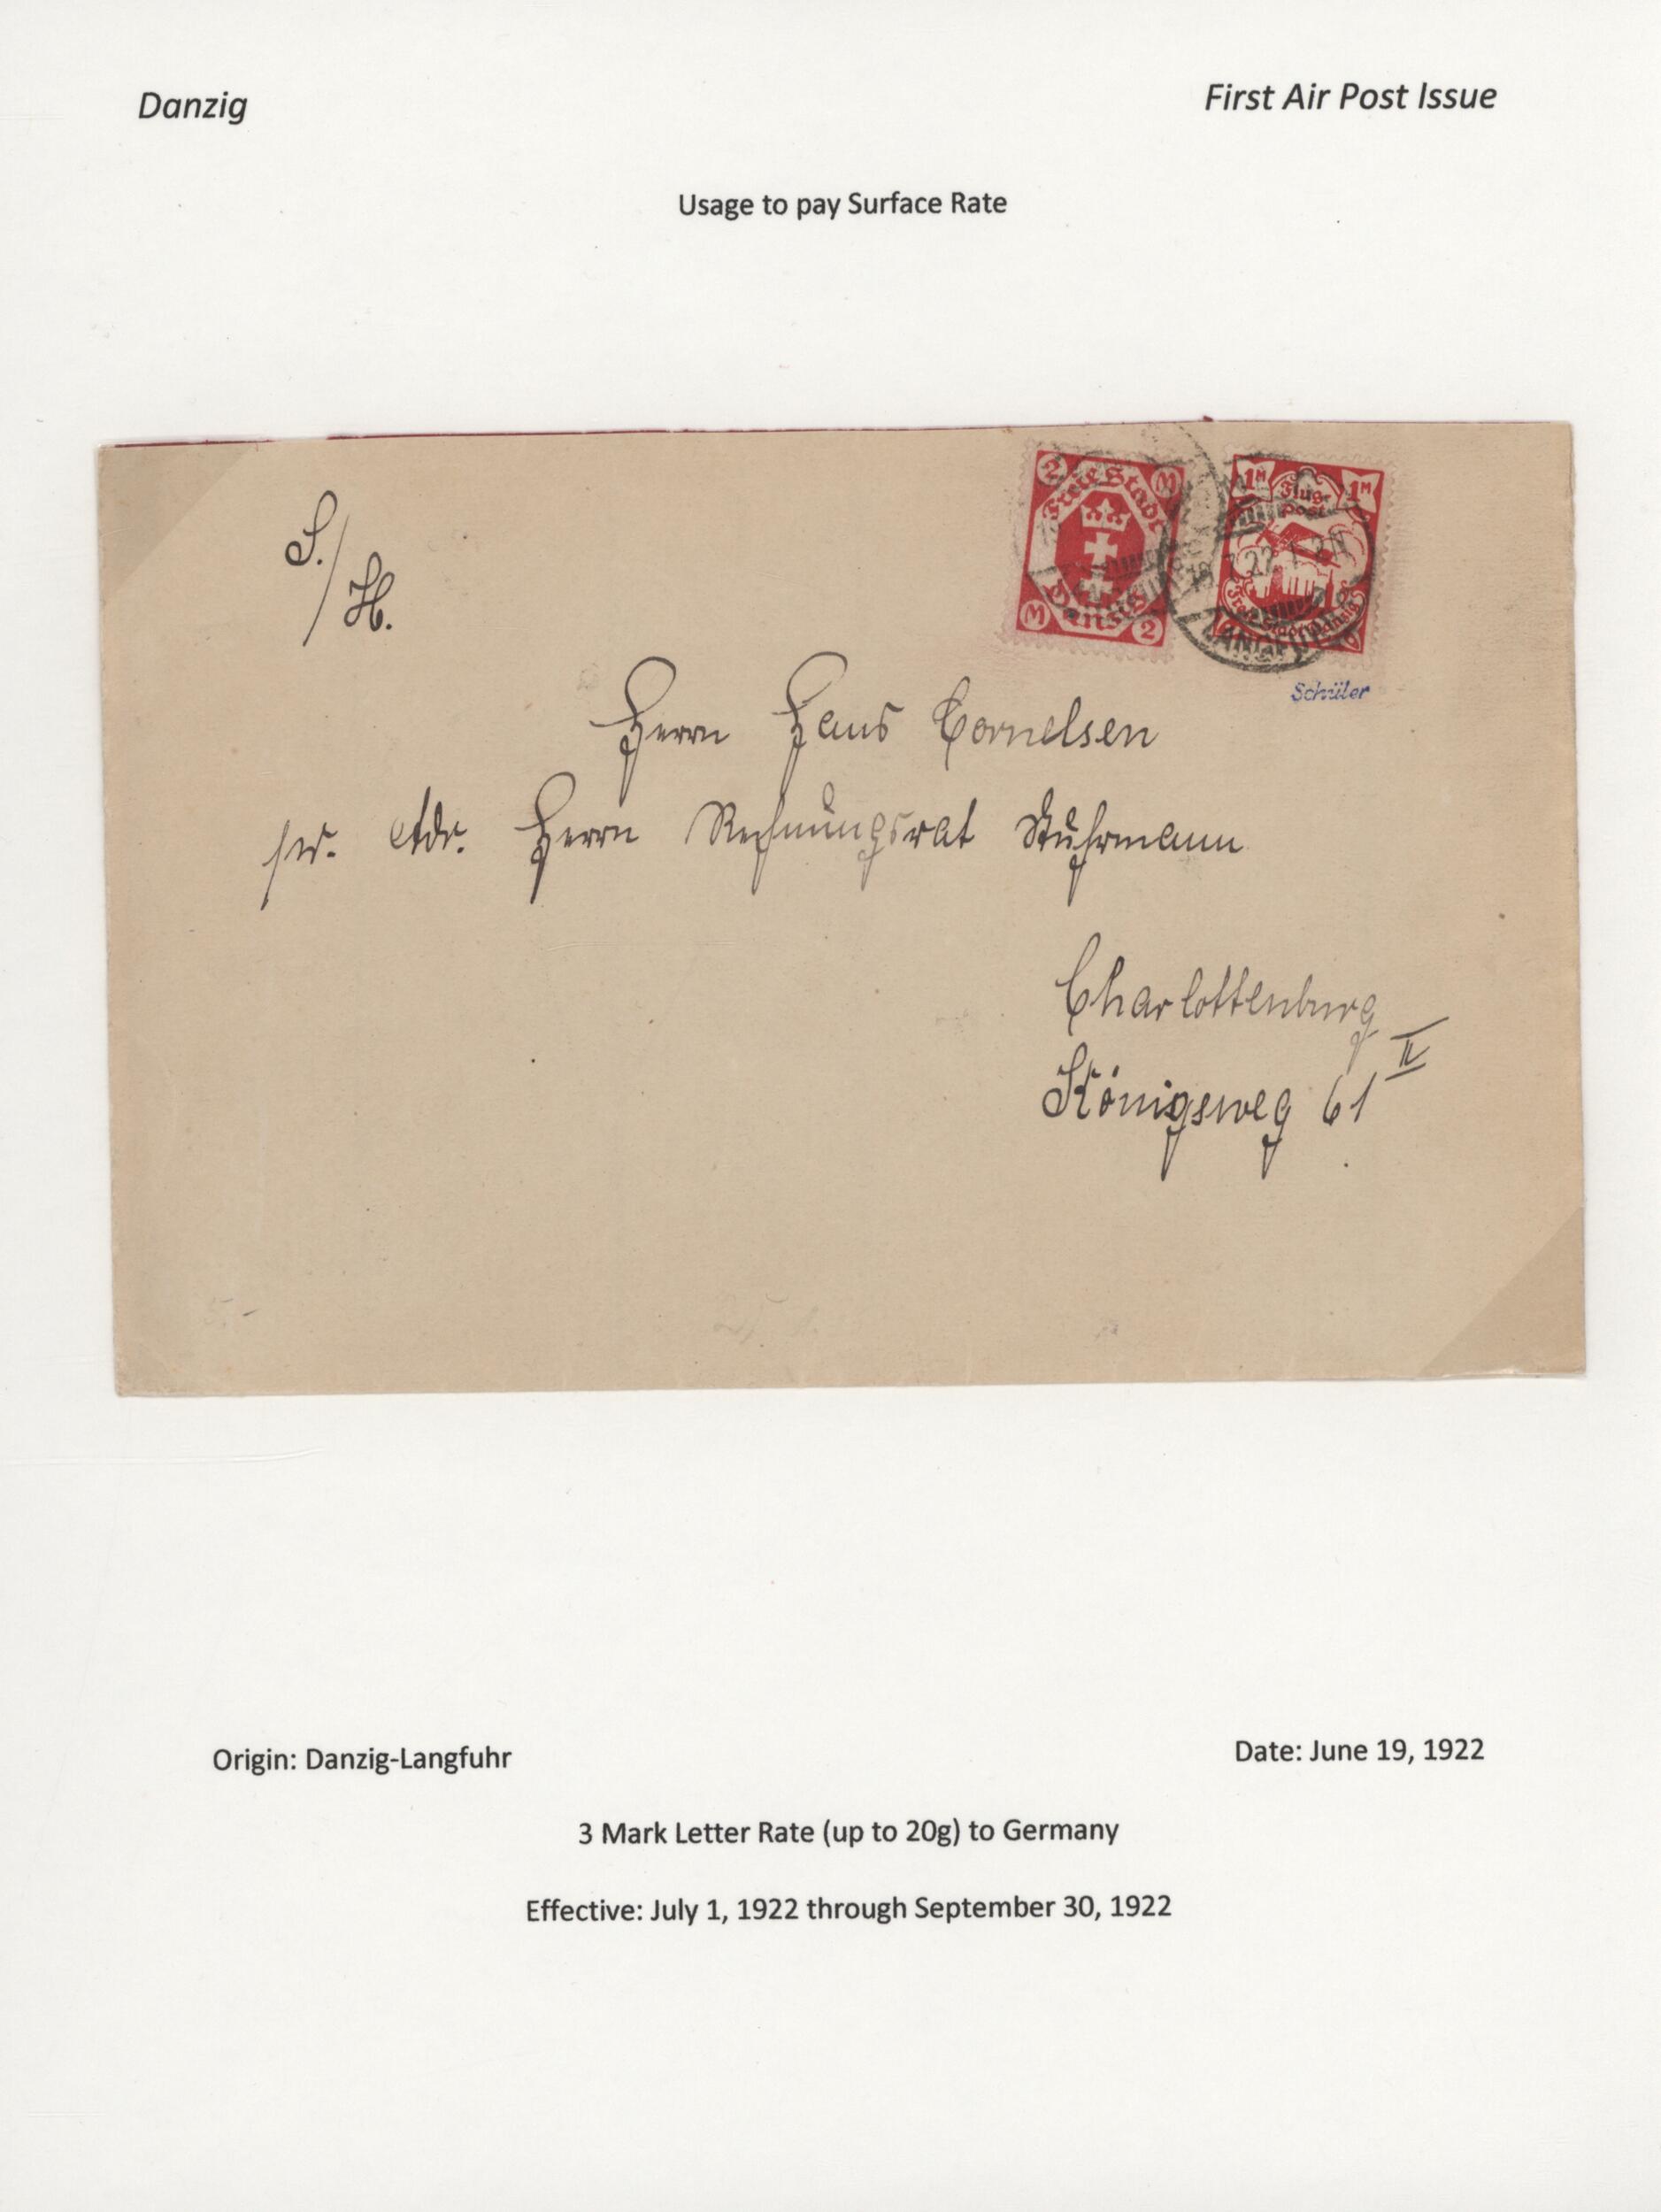 Danzig
First Air Post Issue
Usage to pay Surface Rate
S./H.
2 M
Freie Stadt
Danzig
M 2
1M Flug-post 1M
Freie Stadt Danzig
LANGFUHR
Schüler
Herrn Hans Cornelsen
pr. Adr. Herrn Rechnungsrat Stuhrmann
Charlottenburg
Königsweg 61 II
5.-
Origin: Danzig-Langfuhr
Date: June 19, 1922
3 Mark Letter Rate (up to 20g) to Germany
Effective: July 1, 1922 through September 30, 1922